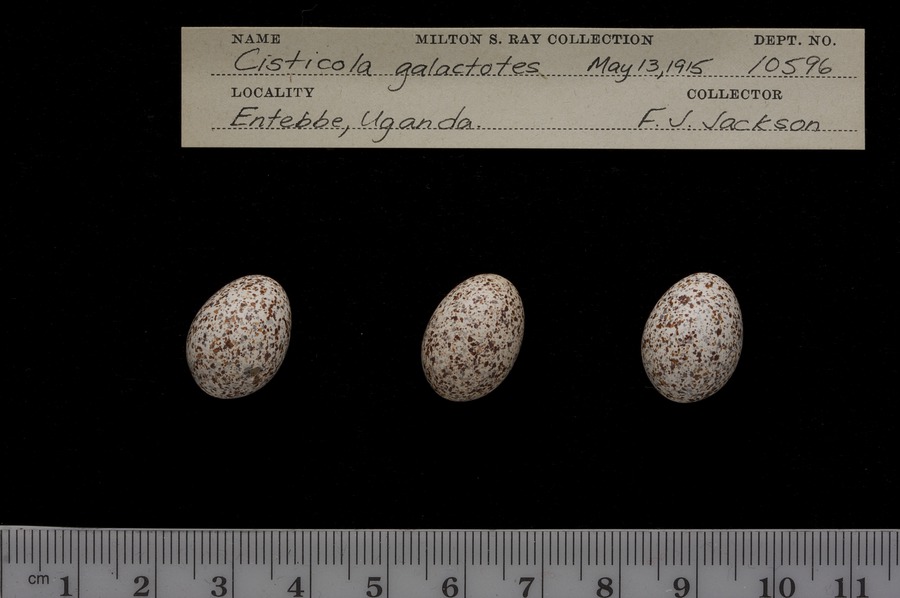 NAME MILTON S. RAY COLLECTION DEPT. NO.
Cisticola galactotes May 13, 1915 10596
LOCALITY COLLECTOR
Entebbe, Uganda. F. J. Jackson
cm 1 2 3 4 5 6 7 8 9 10 11